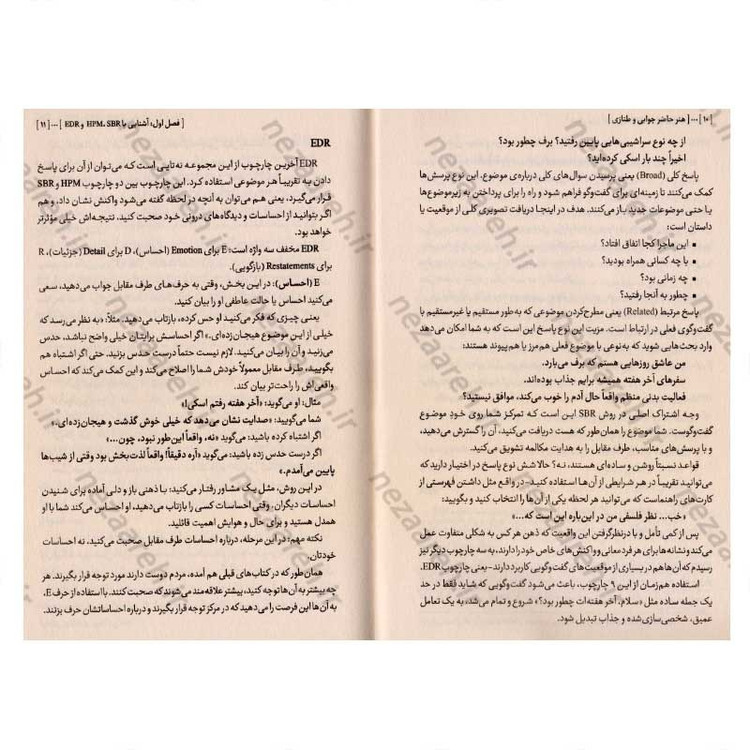 ۱۰ ]...[ هنر حاضر جوابی و طنازی ]
از چه نوع سراشیبی‌هایی پایین رفتید؟ برف چطور بود؟
اخیراً چند بار اسکی کرده‌اید؟
پاسخ کلی (Broad) یعنی پرسیدن سوال‌های کلی درباره‌ی موضوع. این نوع پرسش‌ها
کمک می‌کنند تا زمینه‌ای برای گفت‌وگو فراهم شود و راه را برای پرداختن به زیرموضوع‌ها
یا حتی موضوعات جدید باز می‌کنند. هدف در اینجا دریافت تصویری کلی از موقعیت یا
داستان است:
▪ این ماجرا کجا اتفاق افتاد؟
▪ با چه کسانی همراه بودید؟
▪ چه زمانی بود؟
▪ چطور به آنجا رفتید؟
پاسخ مرتبط (Related) یعنی مطرح‌کردن موضوعی که به‌طور مستقیم یا غیرمستقیم با
گفت‌وگوی فعلی در ارتباط است. مزیت این نوع پاسخ این است که به شما امکان می‌دهد
وارد بحث‌هایی شوید که به‌نوعی با موضوع فعلی هم‌مرز یا هم‌پیوند هستند:
من عاشق روزهایی هستم که برف می‌بارد.
سفرهای آخر هفته همیشه برایم جذاب بوده‌اند.
فعالیت بدنی منظم واقعاً حال آدم را خوب می‌کند، موافق نیستید؟
وجه اشتراک اصلی در روش SBR این است که تمرکز شما روی خودِ موضوع
گفت‌وگوست. شما موضوع را همان‌طور که هست دریافت می‌کنید، آن را گسترش می‌دهید،
و با پرسش‌های مناسب، طرف مقابل را به هدایت مکالمه تشویق می‌کنید.
قواعد نسبتاً روشن و ساده‌ای هستند، نه؟ حالا شش نوع پاسخ در اختیار دارید که
می‌توانید تقریباً در هر شرایطی از آن‌ها استفاده کنید-در واقع مثل داشتن فهرستی از
کارت‌های راهنماست که می‌توانید هر لحظه یکی از آن‌ها را انتخاب کنید و بگویید:
«خب... نظر فلسفی من در این‌باره این است که...»
پس از کمی تأمل و با درنظرگرفتن این واقعیت که ذهن هر کس به شکلی متفاوت عمل
می‌کند و نشانه‌ها برای هر فرد معانی و واکنش‌های خاص خود را دارند، به سه چارچوب دیگر نیز
رسیدم که آن‌ها هم در بسیاری از موقعیت‌های گفت‌وگویی کاربرد دارند-یعنی چارچوب EDR.
استفاده هم‌زمان از این ۹ چارچوب، باعث می‌شود گفت‌وگویی که شاید فقط در حد
یک جمله ساده مثل «سلام. آخر هفته‌ات چطور بود؟» شروع و تمام می‌شد، به یک تعامل
عمیق، شخصی‌سازی‌شده و جذاب تبدیل شود.
[ فصل اول، آشنایی با HPM، SBR و EDR ]...[ ۱۱ ]
EDR
EDR آخرین چارچوب از این مجموعه نه‌تایی است که می‌توان از آن برای پاسخ
دادن به تقریباً هر موضوعی استفاده کرد. این چارچوب بین دو چارچوب HPM و SBR
قرار می‌گیرد، یعنی هم می‌توان به آنچه در لحظه گفته می‌شود واکنش نشان داد، و هم
اگر بتوانید از احساسات و دیدگاه‌های درونی خود صحبت کنید، نتیجه‌اش خیلی مؤثرتر
خواهد بود.
EDR مخفف سه واژه است: E برای Emotion (احساس)، D برای Detail (جزئیات)، R
برای Restatements (بازگویی).
E (احساس): در این بخش، وقتی به حرف‌های طرف مقابل جواب می‌دهید، سعی
می‌کنید احساس یا حالت عاطفی او را بیان کنید.
یعنی چیزی که فکر می‌کنید او حس کرده، بازتاب می‌دهید. مثلاً: «به نظر می‌رسد که
خیلی از این موضوع هیجان‌زده‌ای.» اگر احساسش برایتان خیلی واضح نباشد، حدس
می‌زنید و آن را بیان می‌کنید. لازم نیست حتماً درست حدس بزنید. حتی اگر اشتباه هم
بگویید، طرف مقابل معمولاً خودش شما را اصلاح می‌کند و این کمک می‌کند که احساس
واقعی‌اش را راحت‌تر بیان کند.
مثال: او می‌گوید: «آخر هفته رفتم اسکی!»
شما می‌گویید: «صدایت نشان می‌دهد که خیلی خوش گذشت و هیجان‌زده‌ای.»
اگر اشتباه کرده باشید: می‌گوید «نه، واقعاً این‌طور نبود، چون...»
اگر درست حدس زده باشید: می‌گوید «آره دقیقاً! واقعاً لذت‌بخش بود وقتی از شیب‌ها
پایین می‌آمدم.»
در این روش، مثل یک مشاور رفتار می‌کنید: با ذهنی باز و دلی آماده برای شنیدن
احساسات دیگران. وقتی احساسات کسی را بازتاب می‌دهید، او احساس می‌کند شما با او
همدل هستید و برای حال و هوایش اهمیت قائلید.
نکته مهم: در این مرحله، درباره احساسات طرف مقابل صحبت می‌کنید، نه احساسات
خودتان.
همان‌طور که در کتاب‌های قبلی هم آمده، مردم دوست دارند مورد توجه قرار بگیرند. هر
چه بیشتر به آن‌ها توجه کنید، بیشتر علاقه‌مند می‌شوند که صحبت کنند. با استفاده از حرف E،
به آن‌ها این فرصت را می‌دهید که در مرکز توجه قرار بگیرند و درباره احساساتشان حرف بزنند.
nezaareh.ir